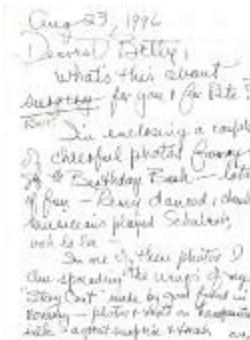 Aug 23, 1996
Dearest Betty,
What's this about
surgery for you & for Pete?
I'm enclosing a couple
of cheerful photos from
Birthday Bash - lots
of fun - danced,
musicians played Schubert,
ooh la la -
In one of these photos I
am spreading the wings of my
"Story Coat" made by good friend in
- photos & words on
silk - a great surprise &